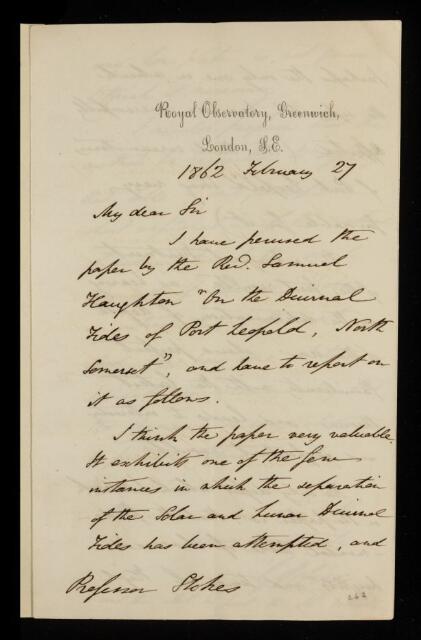 Royal Observatory, Greenwich,
London, S.E.
1862 February 27
My dear Sir
I have perused the
paper by the Revd. Samuel
Haughton "On the Diurnal
Tides of Port Leopold, North
Somerset", and have to report on
it as follows.
I think the paper very valuable.
It exhibits one of the few
instances in which the separation
of the Solar and Lunar Diurnal
Tides has been attempted, and
Professor Stokes
262